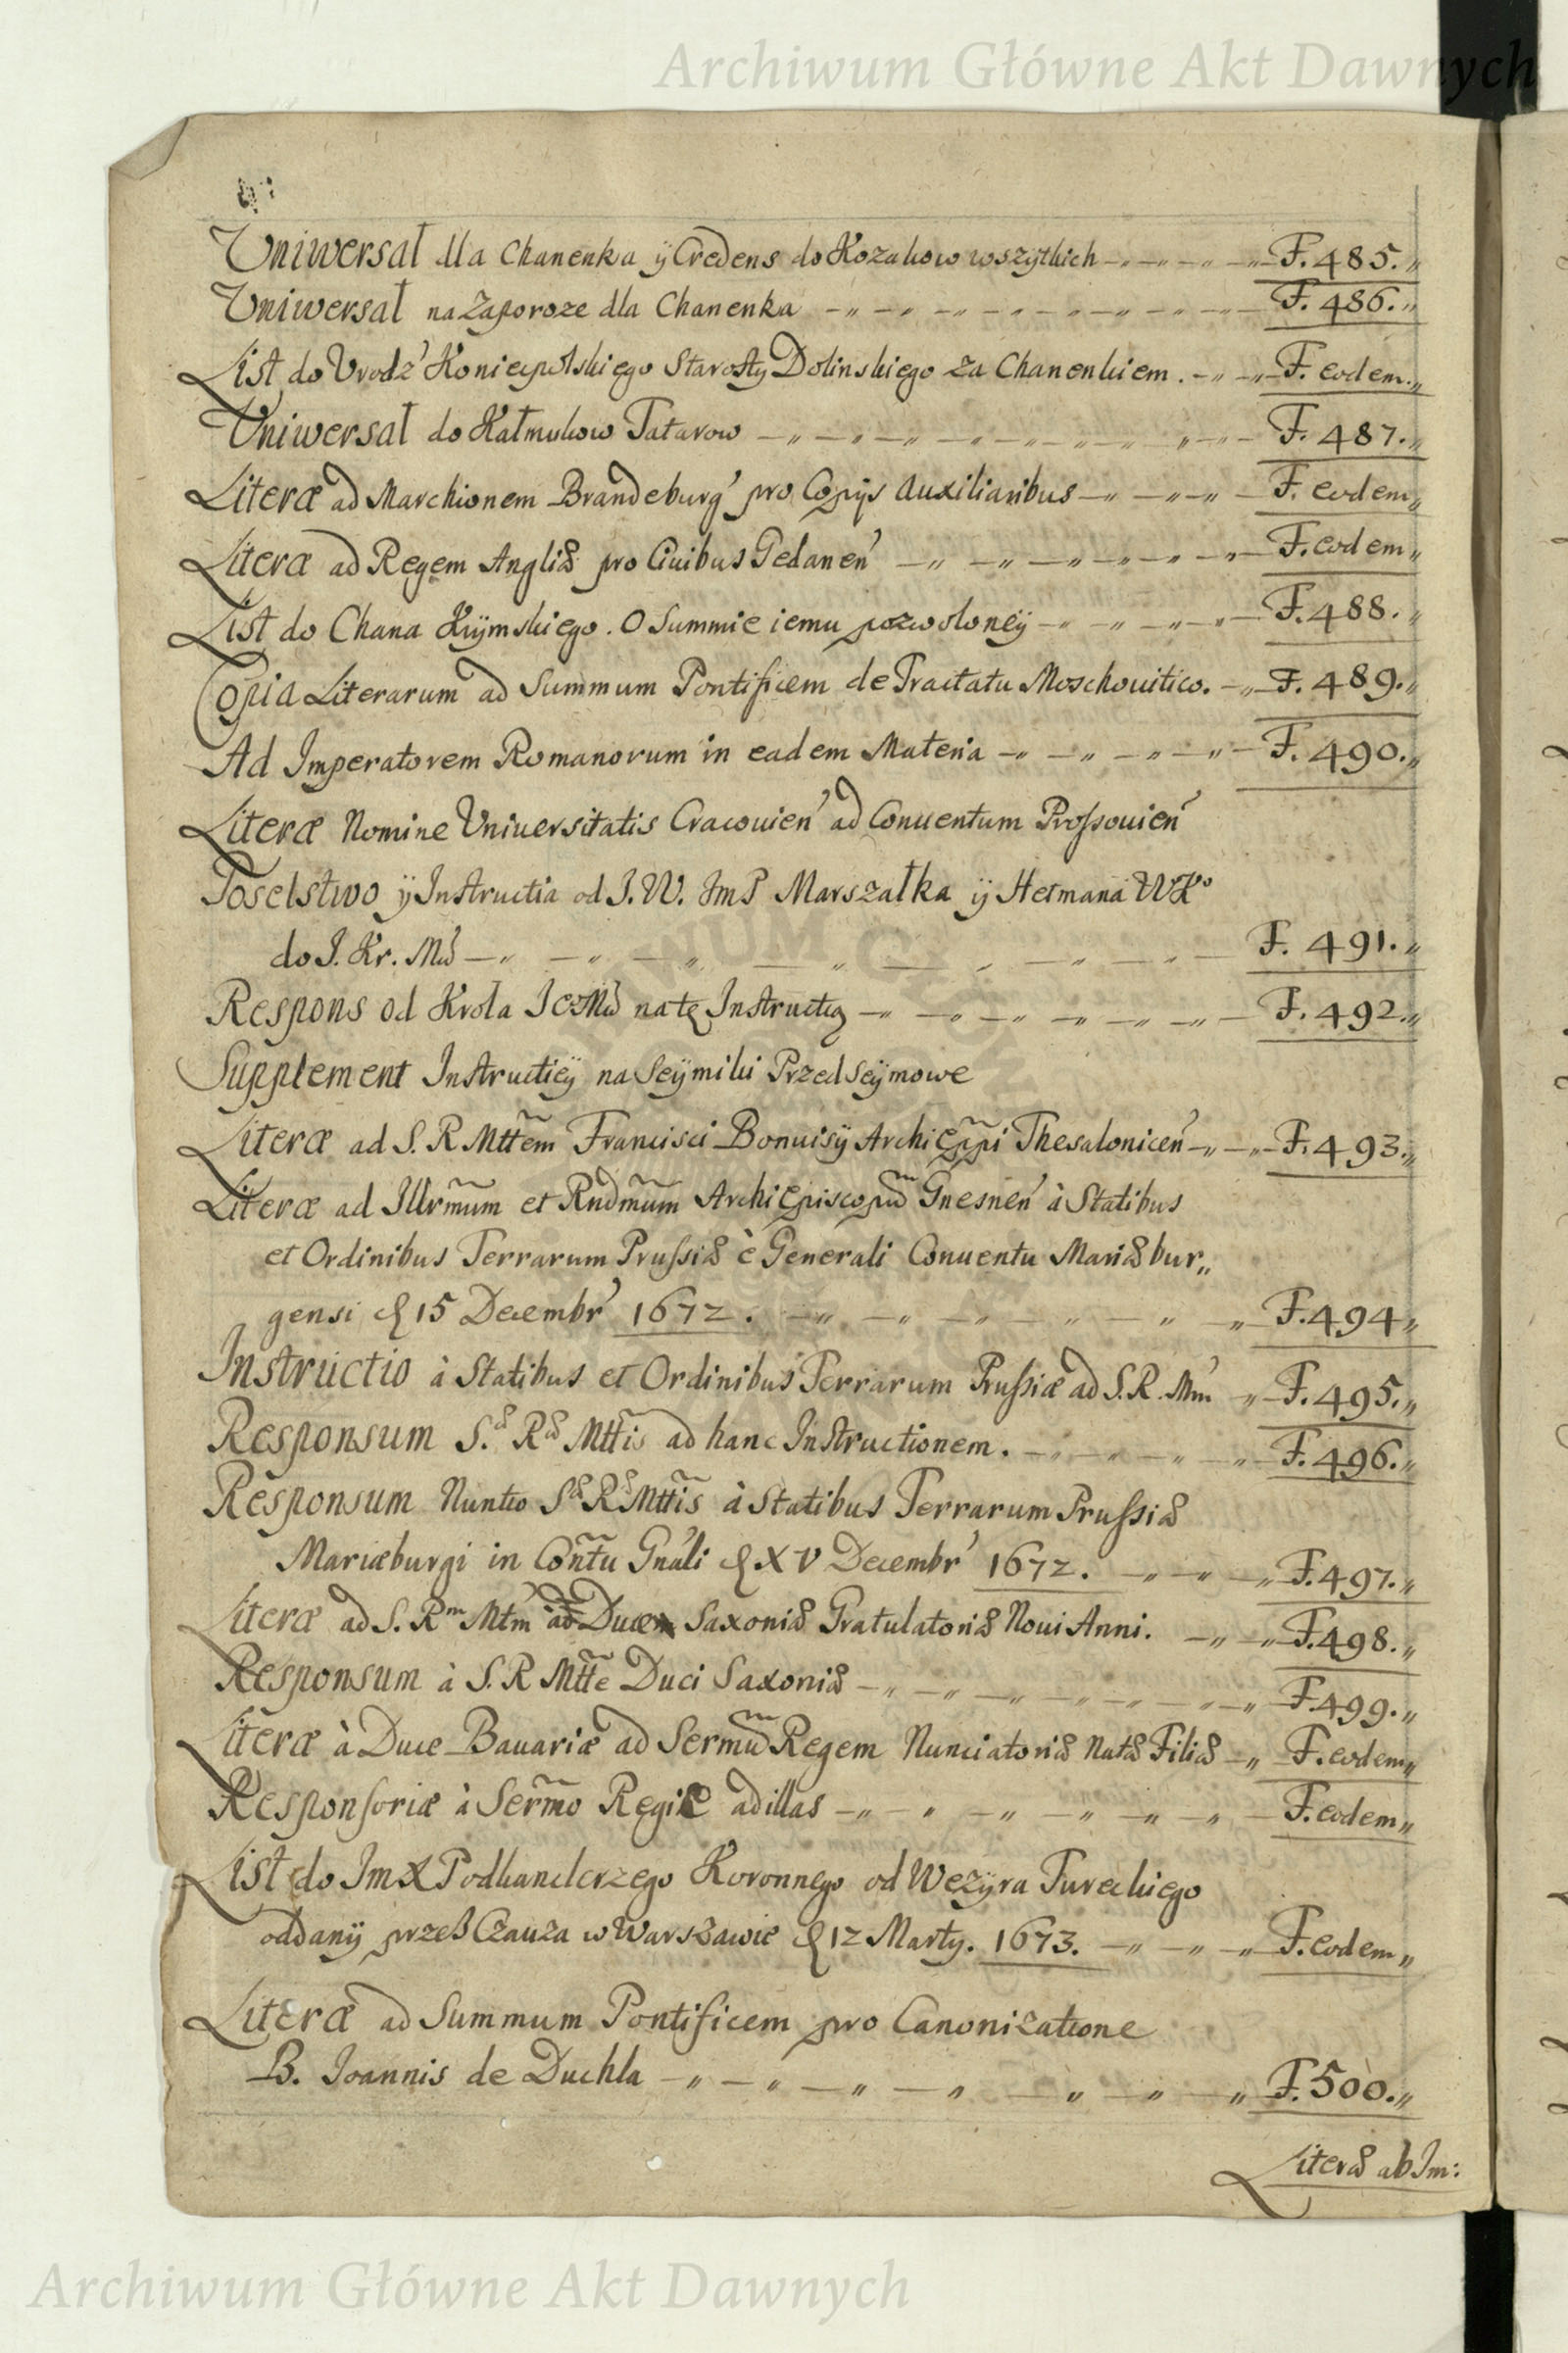 Archiwum Główne Akt Dawnych
Vniwersał dla Chanenka ÿ Credens do Kozakow wszytkich F. 485.
Vniwersał na Zaporoze dla Chanenka F. 486.
List do Vrodz' Koniecpolskiego Starosty Dolinskiego za Chanenkiem. F. eodem
Vniwersał do Kałmukow Tatarow F. 487.
Literæ ad Marchionem Brandeburg' pro Copijs Auxiliaribus F. eodem
Literæ ad Regem Angliæ pro Ciuibus Gedanen' F. eodem
List do Chana Krÿmskiego. O Summie iemu pozwoloneÿ F. 488.
Copia Literarum ad Summum Pontificem de Tractatu Moschouitico. F. 489.
Ad Imperatorem Romanorum in eadem Materia F. 490.
Literæ Nomine Vniuersitatis Cracouien' ad Conuentum Proszouien'
Poselstwo ÿ Instructia od J. W. JmP Marszałka ÿ Hetmana WKo
do J. Kr. Mci F. 491.
Respons od Krola JeoMci na tę Instructią F. 492.
Supplement Instructieÿ na Seÿmiki Przed Seÿmowe
Literæ ad S. R Mttem Francisci Bonuisÿ Archi Eppi Thesalonicen' F. 493.
Literæ ad Illrmum et Rndmum Archi Episcopum Gnesnen' à Statibus
et Ordinibus Terrarum Prussiæ è Generali Conuentu Mariæbur„
gensi d 15 Decembr' 1672. F. 494
Instructio à Statibus et Ordinibus Terrarum Prussiæ ad S. R. Mm' F. 495.
Responsum S.æ Ræ Mttis ad hanc Instructionem. F. 496.
Responsum Nuntio Sæ Ræ Mttis à Statibus Terrarum Prussiæ
Mariæburgi in Contu Gnali d XV Decembr' 1672. F. 497.
Literæ ad S. Rm Mtm ad Duce Saxoniæ Gratulatoriæ Noui Anni. F. 498.
Responsum à S. R Mtte Duci Saxoniæ F. 499.
Literæ à Duce Bauariæ ad Sermum Regem Nunciatoriæ Natæ Filiæ F. eodem
Responsoriæ à Sermo Rege ad illas F. eodem
List do JmX Podkanclerzego Koronnego od Wezÿra Tureckiego
oddanÿ przeß Czauza w Warszawie d 12 Marty. 1673. F. eodem
Literæ ad Summum Pontificem pro Canonizatione
B. Joannis de Duchla F. 500.
Literæ ab Im:
Archiwum Główne Akt Dawnych